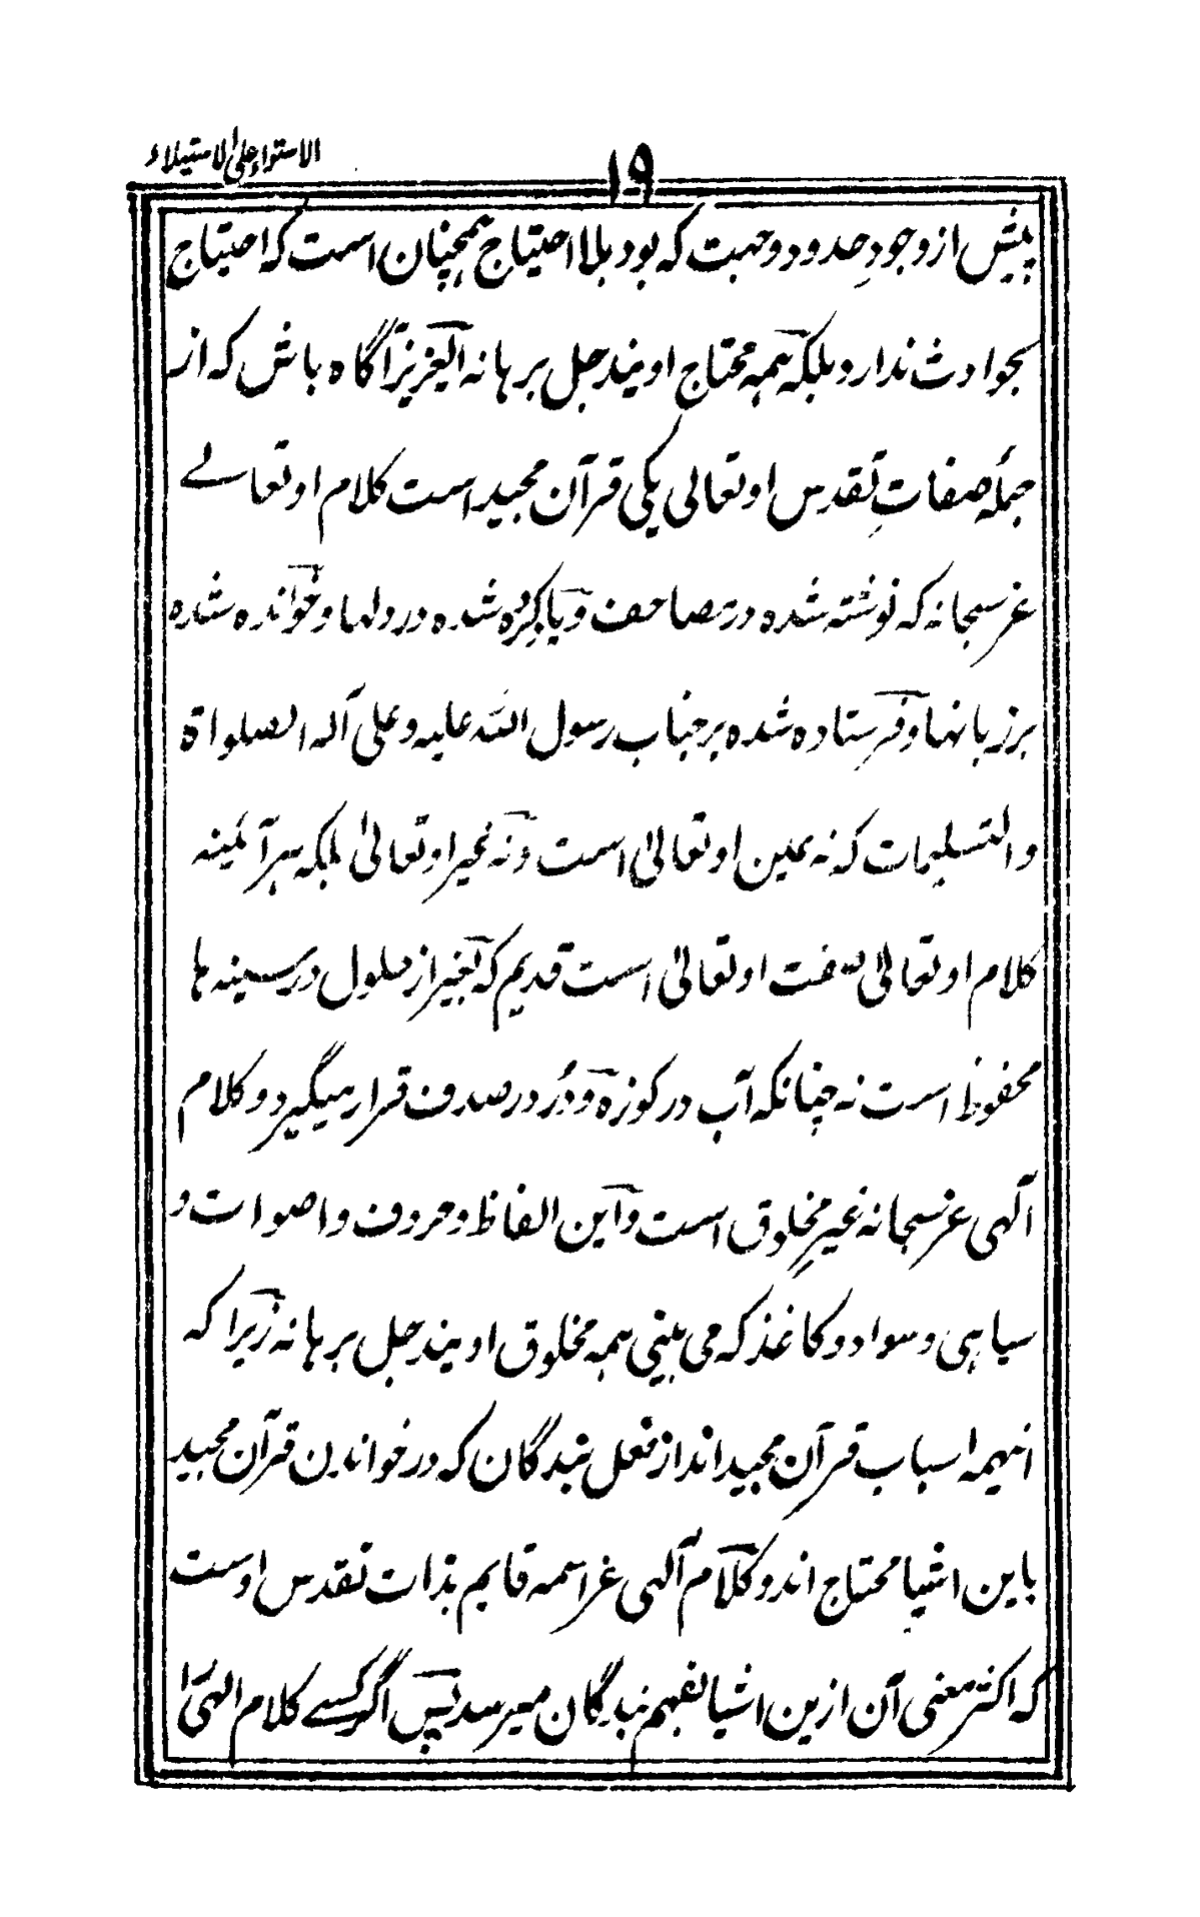 الاستواء علی الاستیلاء
۱۹
پیش از وجودِ حدود و جهت که بود بلا احتیاج همچنان است که احتیاج
بحوادث ندارد بلکه همه محتاج اویند جل برهانه العزیز آگاه باش که از
جملهٔ صفاتِ تقدس او تعالی یکی قرآن مجید است کلام او تعالے
عز سبحانه که نوشته شده در مصاحف و یاد کرده شده در دلها و خوانده شده
بر زبانها و فرستاده شده بر جناب رسول الله علیه و علی آله الصلواة
والتسلیمات که نه عین او تعالیٰ است و نه غیر او تعالیٰ بلکه هر آئینه
کلام او تعالیٰ صفت او تعالیٰ است قدیم که بغیر از حلول در سینه ها
محفوظ است نه چنانکه آب در کوزه و دُر در صدف قرار میگیرد و کلام
آلهی عز سبحانه غیرِ مخلوق است و این الفاظ و حروف و اصوات و
سیاهی و سواد و کاغذ که می بینی همه مخلوق اویند جل برهانه زیرا که
اینهمه اسباب قرآن مجید اند از فعل بندگان که در خواندن قرآن مجید
باین اشیا محتاج اند و کلام آلهی عز اسمه قایم بذات تقدس اوست
که اکثر معنی آن ازین اشیا بفهم بندگان میرسد پس اگر کسے کلام الهیؔ را